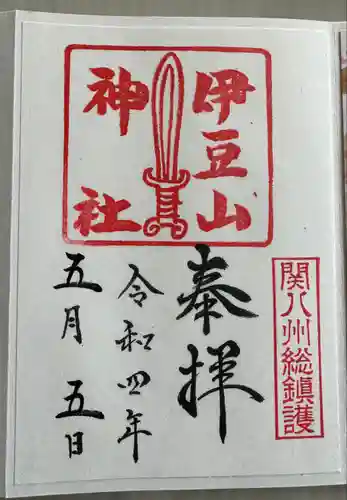 関八州総鎮護
伊豆山
神社
奉拝
令和四年
五月五日